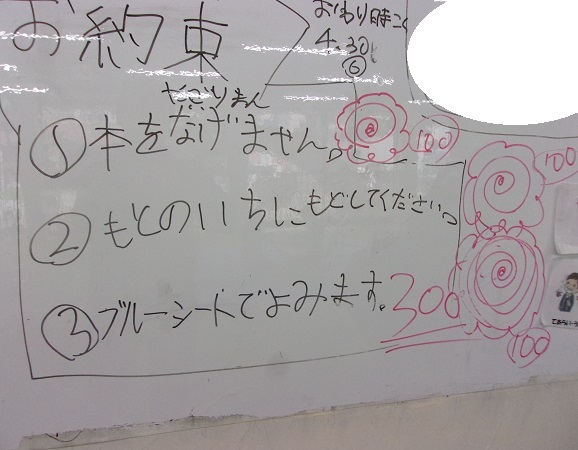 お約束
おわり時こく
4.30
⑥
①本をなげません。
100
②もとのいちにもどしてください。
100
③ブルーシートでよみます。
300
100